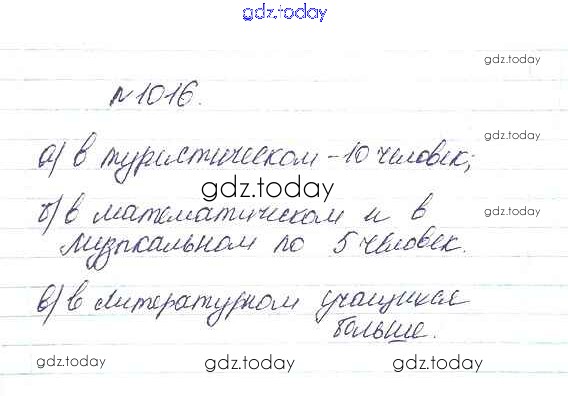 gdz.today
gdz.today
№1016.
gdz.today
а) в туристическом - 10 человек;
gdz.today
б) в математическом и в
gdz.today
музыкальном по 5 человек.
в) в литературном учащихся
больше.
gdz.today gdz.today gdz.today